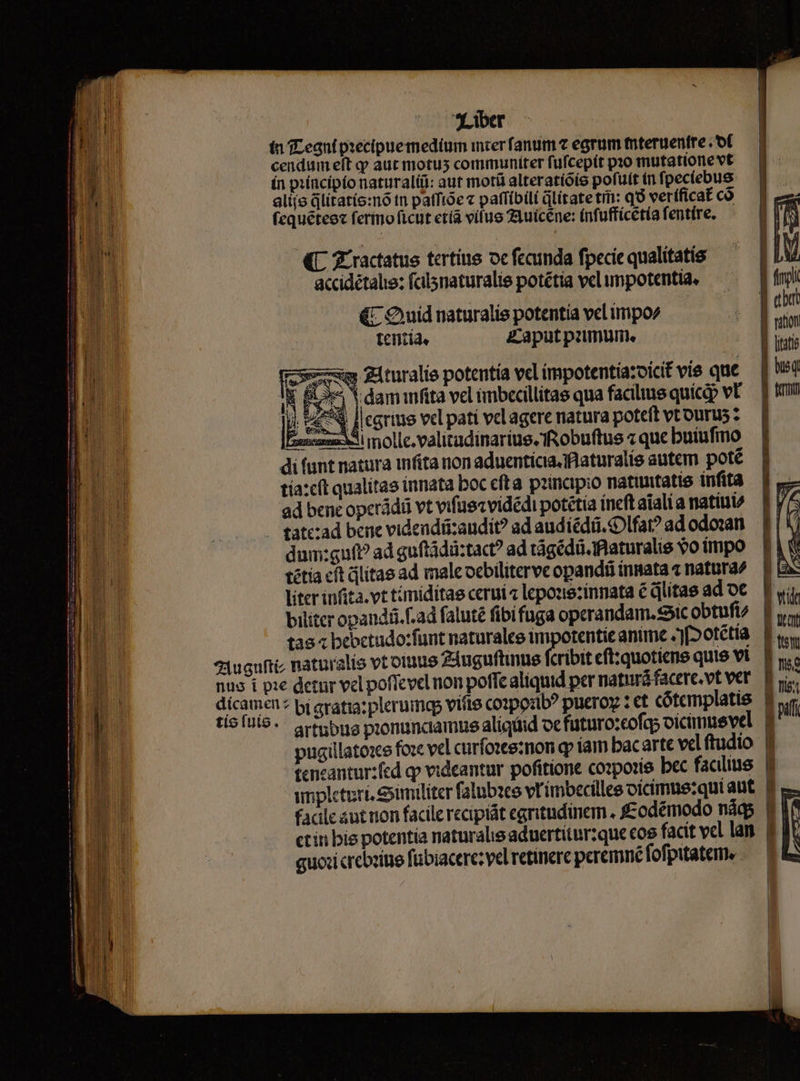 Liber
in Tegni precipue medium inter sanum ⁊ egrum interuenire. dĩ
cendum est ꝙ aut motuꝫ communiter suscepit pro mutatione vt
in principio naturaliũ: aut motũ alteratiõis posuit in speciebus
alijs q̃litatis: nõ in passiõe ⁊ passibili q̃litate tm̃: qð verificat̃ cõ
sequẽtes⁊ sermo sicut etiã visus Auicẽne: insufficẽtia sentire.
¶ Tractatus tertius de secunda specie qualitatis
accidẽtalis: scilꝫ naturalis potẽtia vel impotentia.
¶ Quid naturalis potentia vel impo⸗
tentia. Caput primum.
Aturalis potentia vel impotentia: dicit̃ vis que
dam insita vel imbecillitas qua facilius quicq̃ vl̃
egrius vel pati vel agere natura potest vt duruꝫ:
molle. valitudinarius. Robustus ⁊ que huiusmo
di sunt natura insita non aduenticia. Naturalis autem potẽ
tia: est qualitas innata hoc est a principio natiuitatis insita
ad bene operãdũ vt visus⁊ vidẽdi potẽtia inest aĩali a natiui⸗
tate: ad bene videndũ: auditꝰ ad audiẽdũ. Olfatꝰ ad odoran
dum: gustꝰ ad gustãdũ: tactꝰ ad tãgẽdũ. Naturalis ꝟo impo
tẽtia est q̃litas ad male debiliterve opandũ innata ⁊ natura⸗
liter insita. vt timiditas cerui ⁊ leporis: innata ẽ q̃litas ad de
biliter opandũ. s. ad salutẽ sibi fuga operandam. Sic obtusi⸗
tas ⁊ hebetudo: sunt naturales impotentie anime. Potẽtia
naturalis vt diuus Augustinus scribit est: quotiens quis vi
detur vel posse vel non posse aliquid per naturã facere. vt ver
bi gratia: plerumqꝫ visis corporibꝰ pueroꝝ: et cõtemplatis
artubus pronunciamus aliquid de futuro: eosqꝫ dicimus vel
pugillatores fore vel cursores: non ꝙ iam hac arte vel studio
teneantur: sed ꝙ videantur positione corporis hec facilius
impleturi. Similiter salubres vl̃ imbecilles dicimus: qui aut
facile aut non facile recipiãt egritudinem. Eodẽmodo nãqꝫ
et in his potentia naturalis aduertitur: que eos facit vel lan
guori crebrius subiacere: vel retinere peremnẽ sospitatem.
Augusti⸗
nus ĩ pre
dicamen⸗
tis suis.